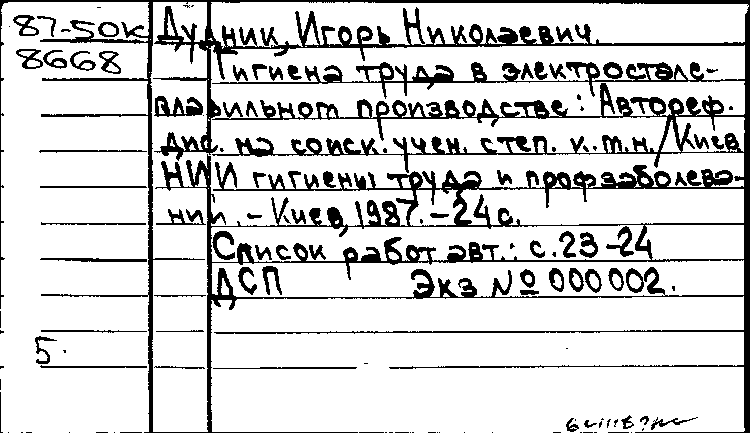 87-50к
8668
Дудник, Игорь Николаевич.
Гигиена труда в электростале-
плавильном производстве: Автореф.
дис. на соиск. учен. степ. к.т.н. / Киев
НИИ гигиены труда и профзаболева-
ний. - Киев, 1987. - 24 с.
Список работ авт.: с. 23-24
ДСП Экз № 000002.
5.